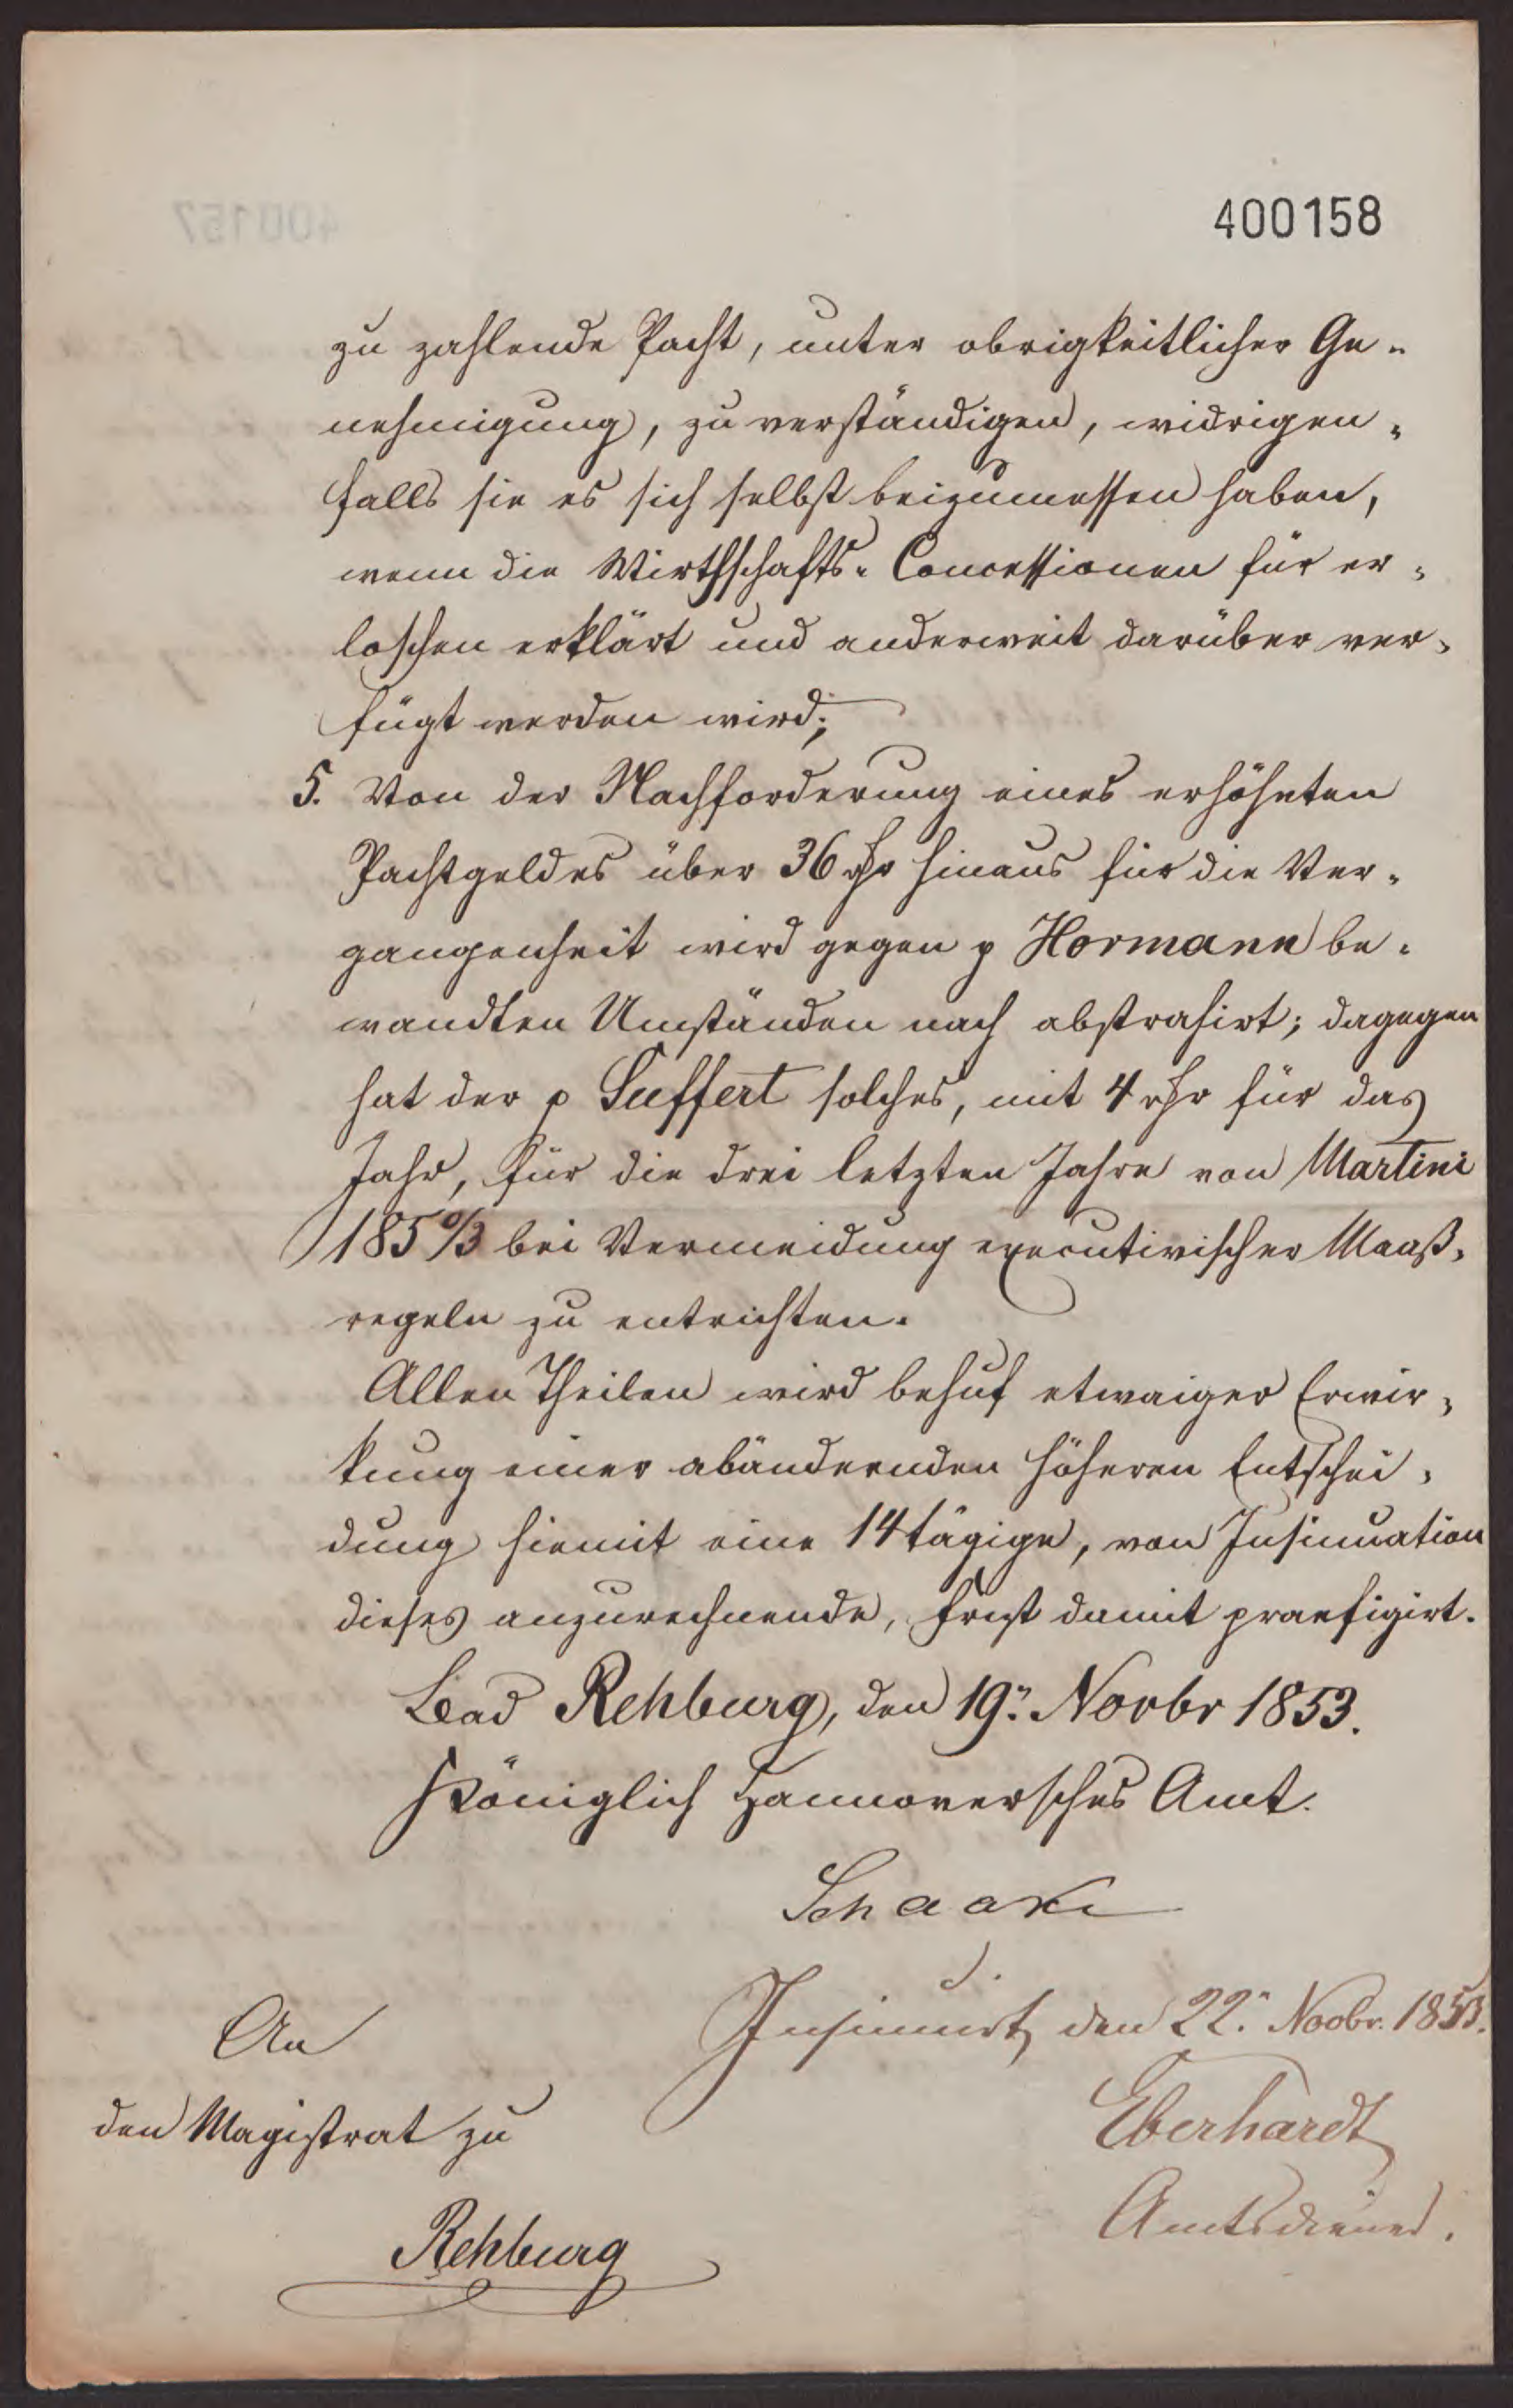 400158
zu zahlende Pacht, unter obrigkeitlicher Ge-
nehmigung, zu verständigen, widrigen-
falls sie es sich selbst beizumessen haben,
wenn die Wirthschafts-Concessionen für er-
loschen erklärt und anderweit darüber ver-
fügt werden wird;
5. Von der Nachforderung eines erhöheten
Pachtgeldes über 36 rthr hinaus für die Ver-
gangenheit wird gegen p Hormann be-
wandten Umständen nach abstrahirt; dagegen
hat der p Suffert solches, mit 4 rthr für das
Jahr, für die drei letzten Jahre von Martini
1850/3 bei Vermeidung executivischer Maaß-
regeln zu entrichten.
Allen Theilen wird behuf etwaiger Erwir-
kung einer abändernden höheren Entschei-
dung hiemit eine 14tägige, von Insinuation
dieses anzurechnende, Frist damit praefigirt.
Bad Rehburg, den 19. Novbr 1853.
Königlich Hannoversches Amt.
Schaake
Insinuirt, den 22. Novbr. 1853.
Eberhardt
Amtsdiener.
An
den Magistrat zu
Rehburg